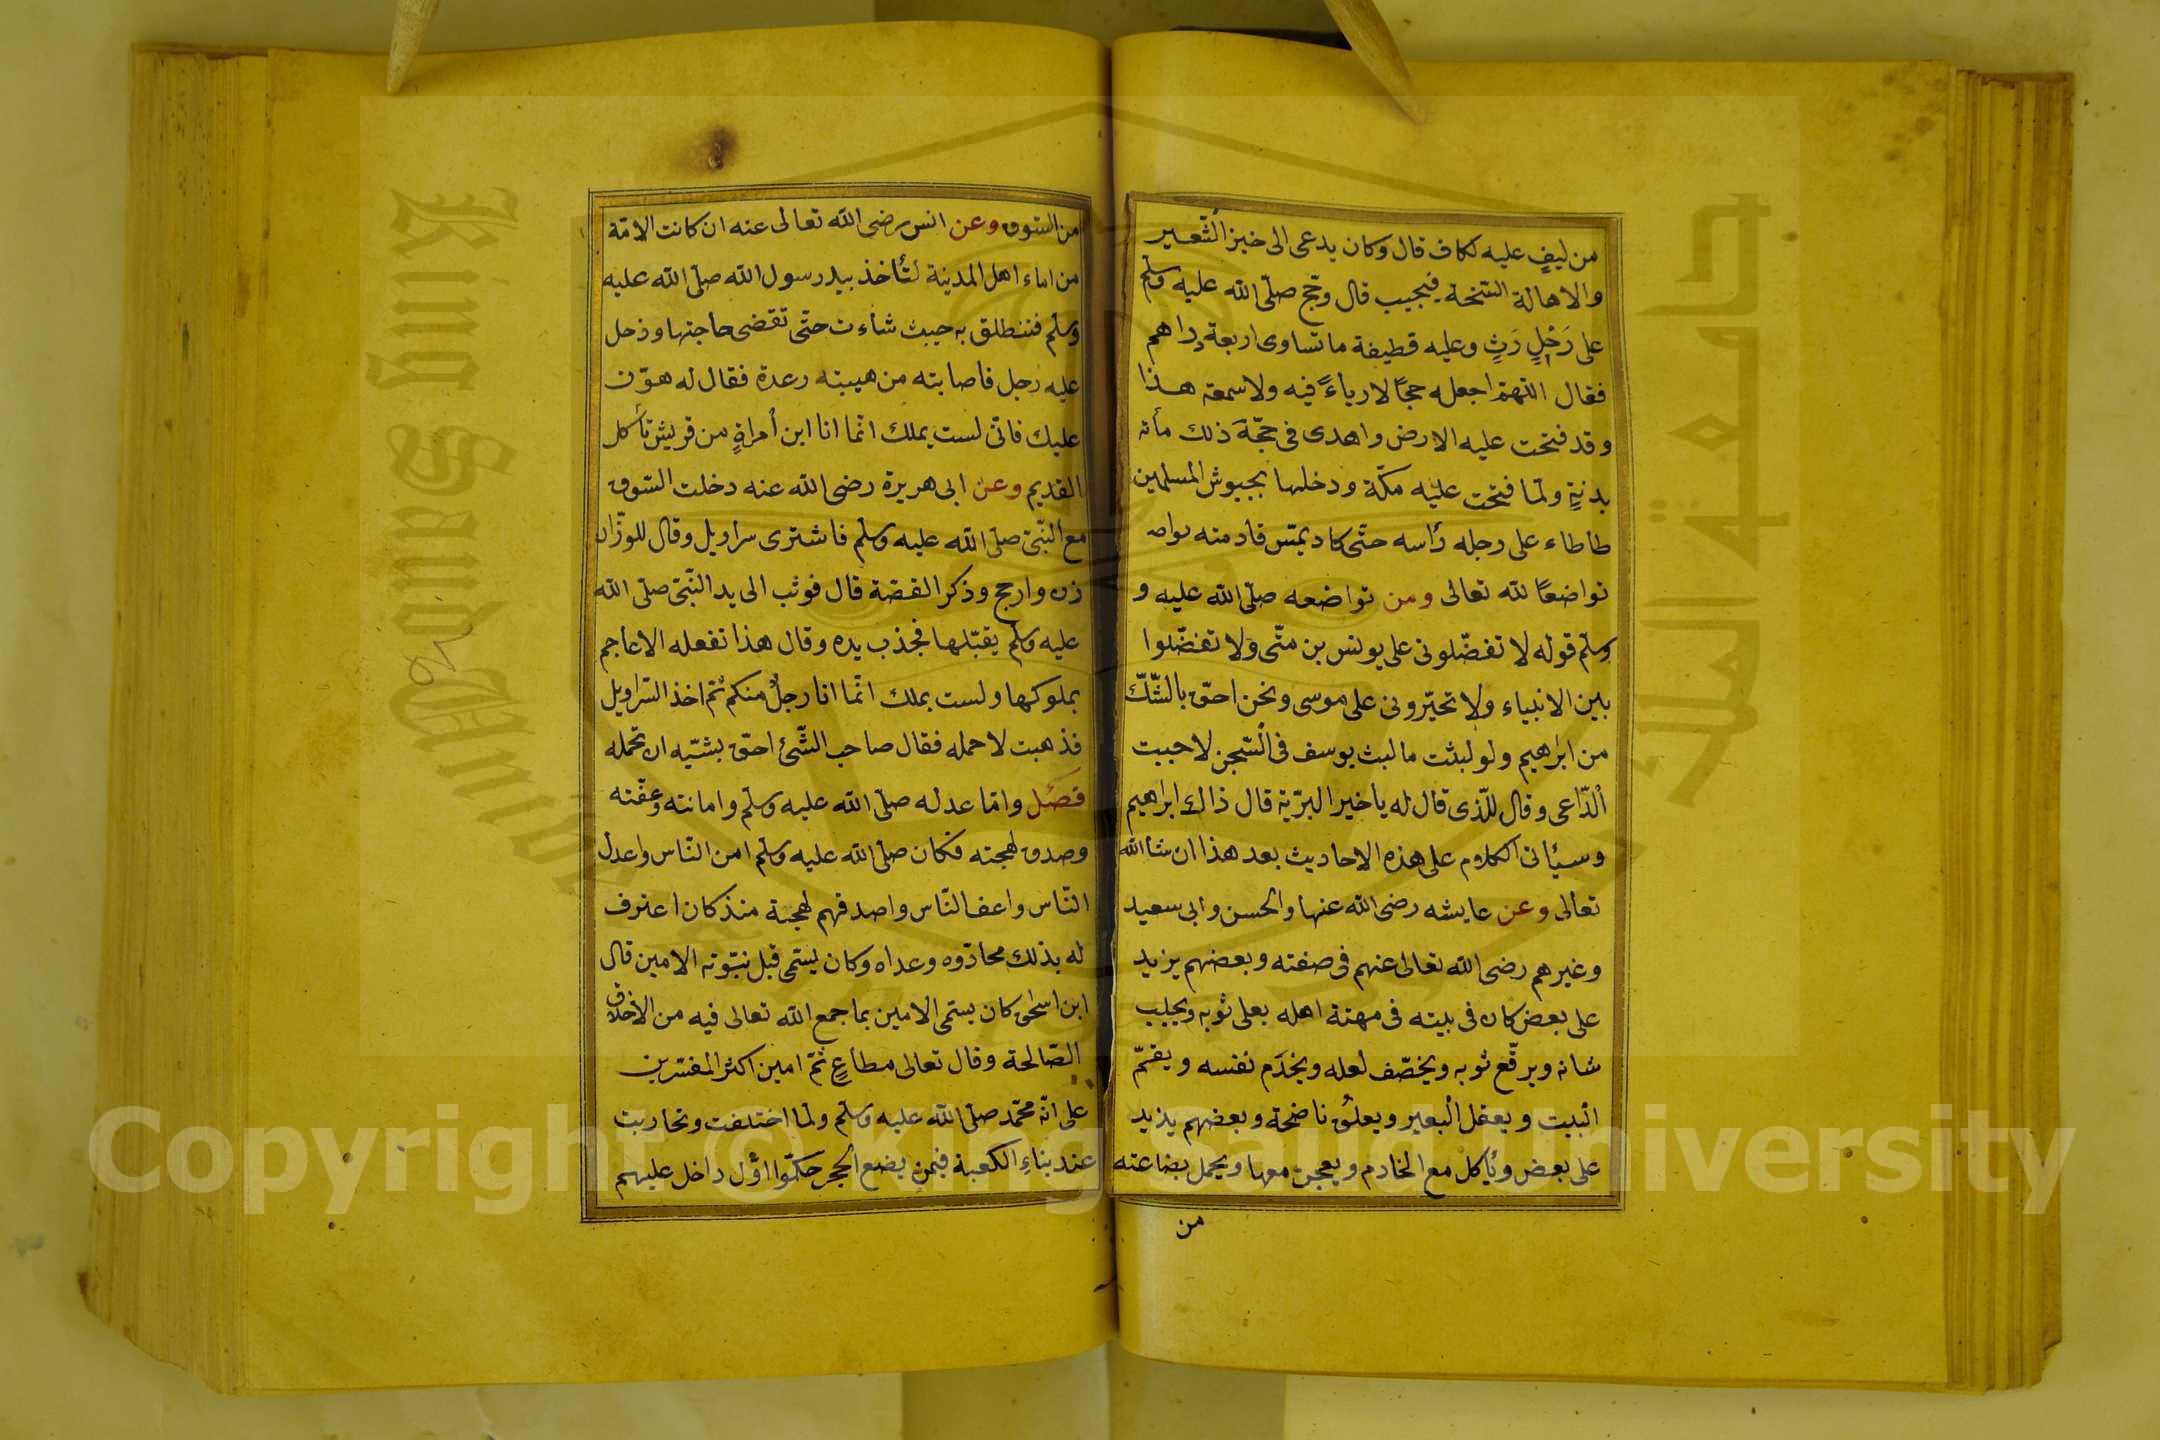 من ليفٍ عليه لكاف قال وكان يدعى الى خبز الشعير
والاهالة السّنخة فيجيب قال وحّج صلّى الله عليه وسلّم
على رَحْلٍ رَثٍ وعليه قطيفة ما تساوى اربعة دراهم
فقال اللّهمّ اجعله حجاً لا رياءً فيه ولا سمعة هذا
وقد فتحت عليه الارض واهدى فى حجّة ذلك مأته
بدنةٍ ولمّا فتحت عليه مكّة ودخلها بجيوش المسلمين
طاطاء على رجله رأسه حتّى كاد يمسّ قادمته
تواضعًا لله تعالى ومن تواضعه صلّى الله عليه و
وسلّم قوله لا تفضّلونى على يونس بن متّى ولا تفضّلوا
بين الانبياء ولا تخيّرونى على موسى ونحن احقّ بالشّكّ
من ابرٰهيم ولو لبثت ما لبث يوسف فى السّجن لاجبت
الدّاعى وقال للّذى قال له يا خير البرّية قال ذاك ابراهيم
وسيأتى الكلام على هذه الاحاديث بعد هذا ان شاالله
تعالى وعن عايشه رضى الله عنها والحسن وابى سعيد
وغيرهم رضى الله تعالى عنهم فى صفته وبعضهم يزيد
على بعض كان فى بيته فى مهنة اهله يفلى ثوبه ويحلب
شاته ويرقّع ثوبه ويخصّف نعله ويخدَم نفسه ويقمّ
البيت ويعقل البعير ويعلف ناضحة وبعضهم يزيد
على بعض ويأكل مع الخادم ويعجن معها ويحمل بضاعته
من
من السّوق وعن انس رضى الله تعالى عنه ان كانت الامّة
من اماء اهل المدينة لتأخذ بيد رسول الله صلّى الله عليه
وسلّم فتنطلق به حيث شاءت حتّى تقضى حاجتها ودخل
عليه رجل فاصابته من هيبته رعدة فقال له هوّن
عليك فانّى لست بملك انّما انا ابن أمراةٍ من قريش تأكل
القديم وعن ابى هريرة رضى الله عنه دخلت السّوق
مع النّبىّ صلّى الله عليه وسلّم فاشترى سراويل وقال للوزّان
زن وارجح وذكر القصّة قال فوثب الى يد النّبىّ صلّى الله
عليه وسلّم يقبّلها فجذب يده وقال هذا تفعله الاعاجم
بملوكها ولست بملك انّما انا رجلٌ منكم ثمّ اخذ السّراويل
فذهبت لاحمله فقال صاحب الشّئ احقّ بشيّه ان يحمله
فصل وامّا عدله صلّى الله عليه وسلّم وامانته وعفّته
وصدق لهجته فكان صلّى الله عليه وسلّم امن النّاس واعدل
النّاس واعف النّاس واصدقهم لهجة منذ كان اعترف
له بذلك محادّوه وعداه وكان يسمّى قبل نبّوته الامين قال
ابن اسحٰق كان يسمّى الامين بما جمع الله تعالى فيه من الاخلاق
الصّالحة وقال تعالى مطاعٍ ثمّ امين اكثر المفسّرين
على انّه محمّد صلّى الله عليه وسلّم ولمّا اختلفت وتحاربت
عند بناء الكعبة فيمن يضع الحجر حكّموا اوّل داخل عليهم
King Saud University
جامعة الملك سعود
Copyright © King Saud University